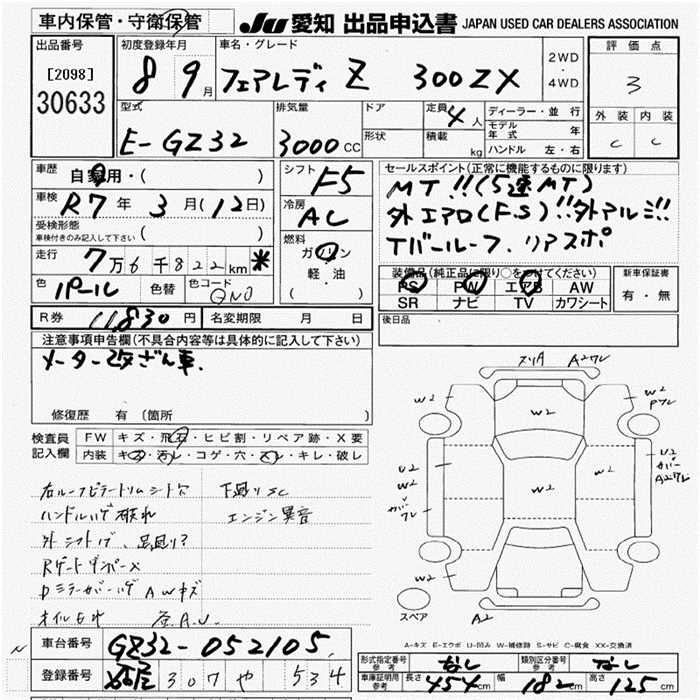 車内保管・守衛保管 JU 愛知 出品申込書 JAPAN USED CAR DEALERS ASSOCIATION
出品番号
[2098]
30633
初度登録年月
8 9月
車名・グレード
フェアレディ Z 300ZX
2WD
・
4WD
評価点
3
外装 内装
C C
型式
E-GZ32
排気量
3000CC
ドア
形状
定員 4人
積載 kg
ディーラー・並行
モデル
年式 年
ハンドル 左・右
車歴
自家用・( )
車検
R7年 3月(12日)
受検形態
車検付きのみ記入して下さい ( )
走行 7万6千822km *
色 パール 色替 色コード QN0
シフト F5
冷房 AC
燃料
ガソリン
軽・油
( )
セールスポイント(正常に機能するものに限ります)
MT!!(5速MT)
外エアロ(FS)!!外アルミ!!
Tバールーフ、リアスポ
装備品(純正品に限り○をつけてください)
PS PW エアB AW
SR ナビ TV カワシート
新車保証書
有・無
R券 11,830円 名変期限 月 日
後日品
注意事項申告欄(不具合内容等は具体的に記入して下さい)
メーター改ざん車.
修復歴 有 (箇所 )
検査員
記入欄
FW キズ・飛石・ヒビ割・リペア跡・X要
内装 キズ・汚レ・コゲ・穴・スレ・キレ・破レ
右ルーフピラートリムシート穴 下廻りSC
ハンドルハゲ破れ エンジン異音
外シフトハゲ、足廻り?
AWキズ
スリA A2ワレ
W2
W2
W2
W2
W2
U2
W2
W2
U2
カバー
A2ワレ
W2
W2
A2
スペア
A-キズ E-エクボ U-凹み W-補修跡 S-サビ C-腐食 XX-交換済
車台番号 GZ32-052105
登録番号 名古屋 307 や 534
形式指定番号
参考
なし
類別区分番号
参考
なし
車庫証明用
参考
長さ 454cm 幅 182cm 高さ 125cm